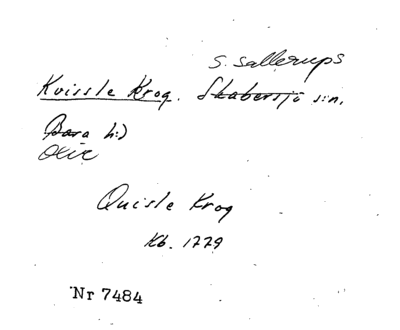 S. Sallerups
Kvissle Krog. Skabersjö s:n.
Bara h:d
Oxie
Quisle Krog
Kb. 1779
Nr 7484